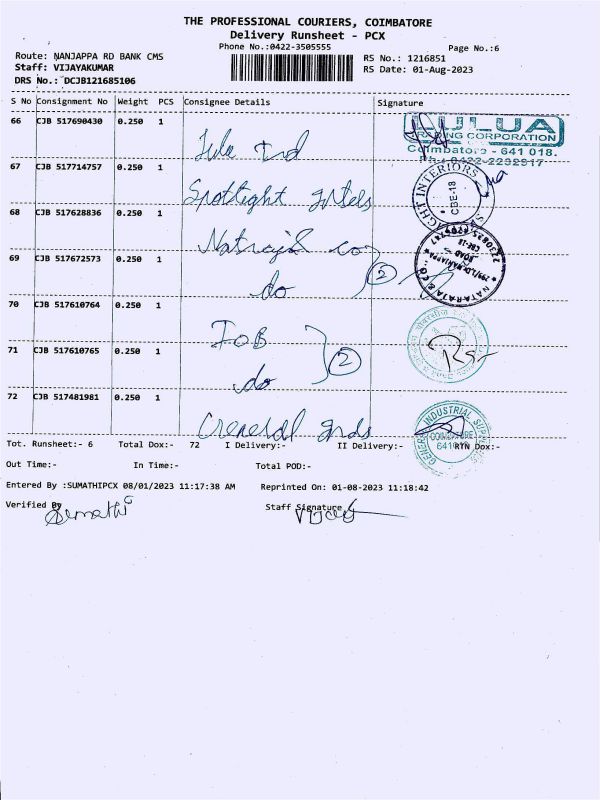 THE PROFESSIONAL COURIERS, COIMBATORE
Delivery Runsheet - PCX
Phone No.:0422-3505555
Page No.:6
Route: NANJAPPA RD BANK CMS
RS No.: 1216851
Staff: VIJAYAKUMAR
RS Date: 01-Aug-2023
DRS No.: DCJB121685106
S No Consignment No Weight PCS Consignee Details Signature
66 CJB 517690430 0.250 1
TRADING CORPORATION
Coimbatore - 641 018.
Ph: 0422-2292917
67 CJB 517714757 0.250 1
Spotlight
INTERIORS
CBE-18
68 CJB 517628836 0.250 1
Nataraj & co
69 CJB 517672573 0.250 1
do
2
NATARAJA & CO.
NANJAPPA
ROAD
CBE-18
70 CJB 517610764 0.250 1
IOB
71 CJB 517610765 0.250 1
do
2
72 CJB 517481981 0.250 1
General Inds
GENERAL INDUSTRIAL
COIMBATORE
Tot. Runsheet:- 6 Total Dox:- 72 I Delivery:- II Delivery:- RTN Dox:-
Out Time:- In Time:- Total POD:-
Entered By :SUMATHIPCX 08/01/2023 11:17:38 AM Reprinted On: 01-08-2023 11:18:42
Verified By Staff Signature
Sumathi